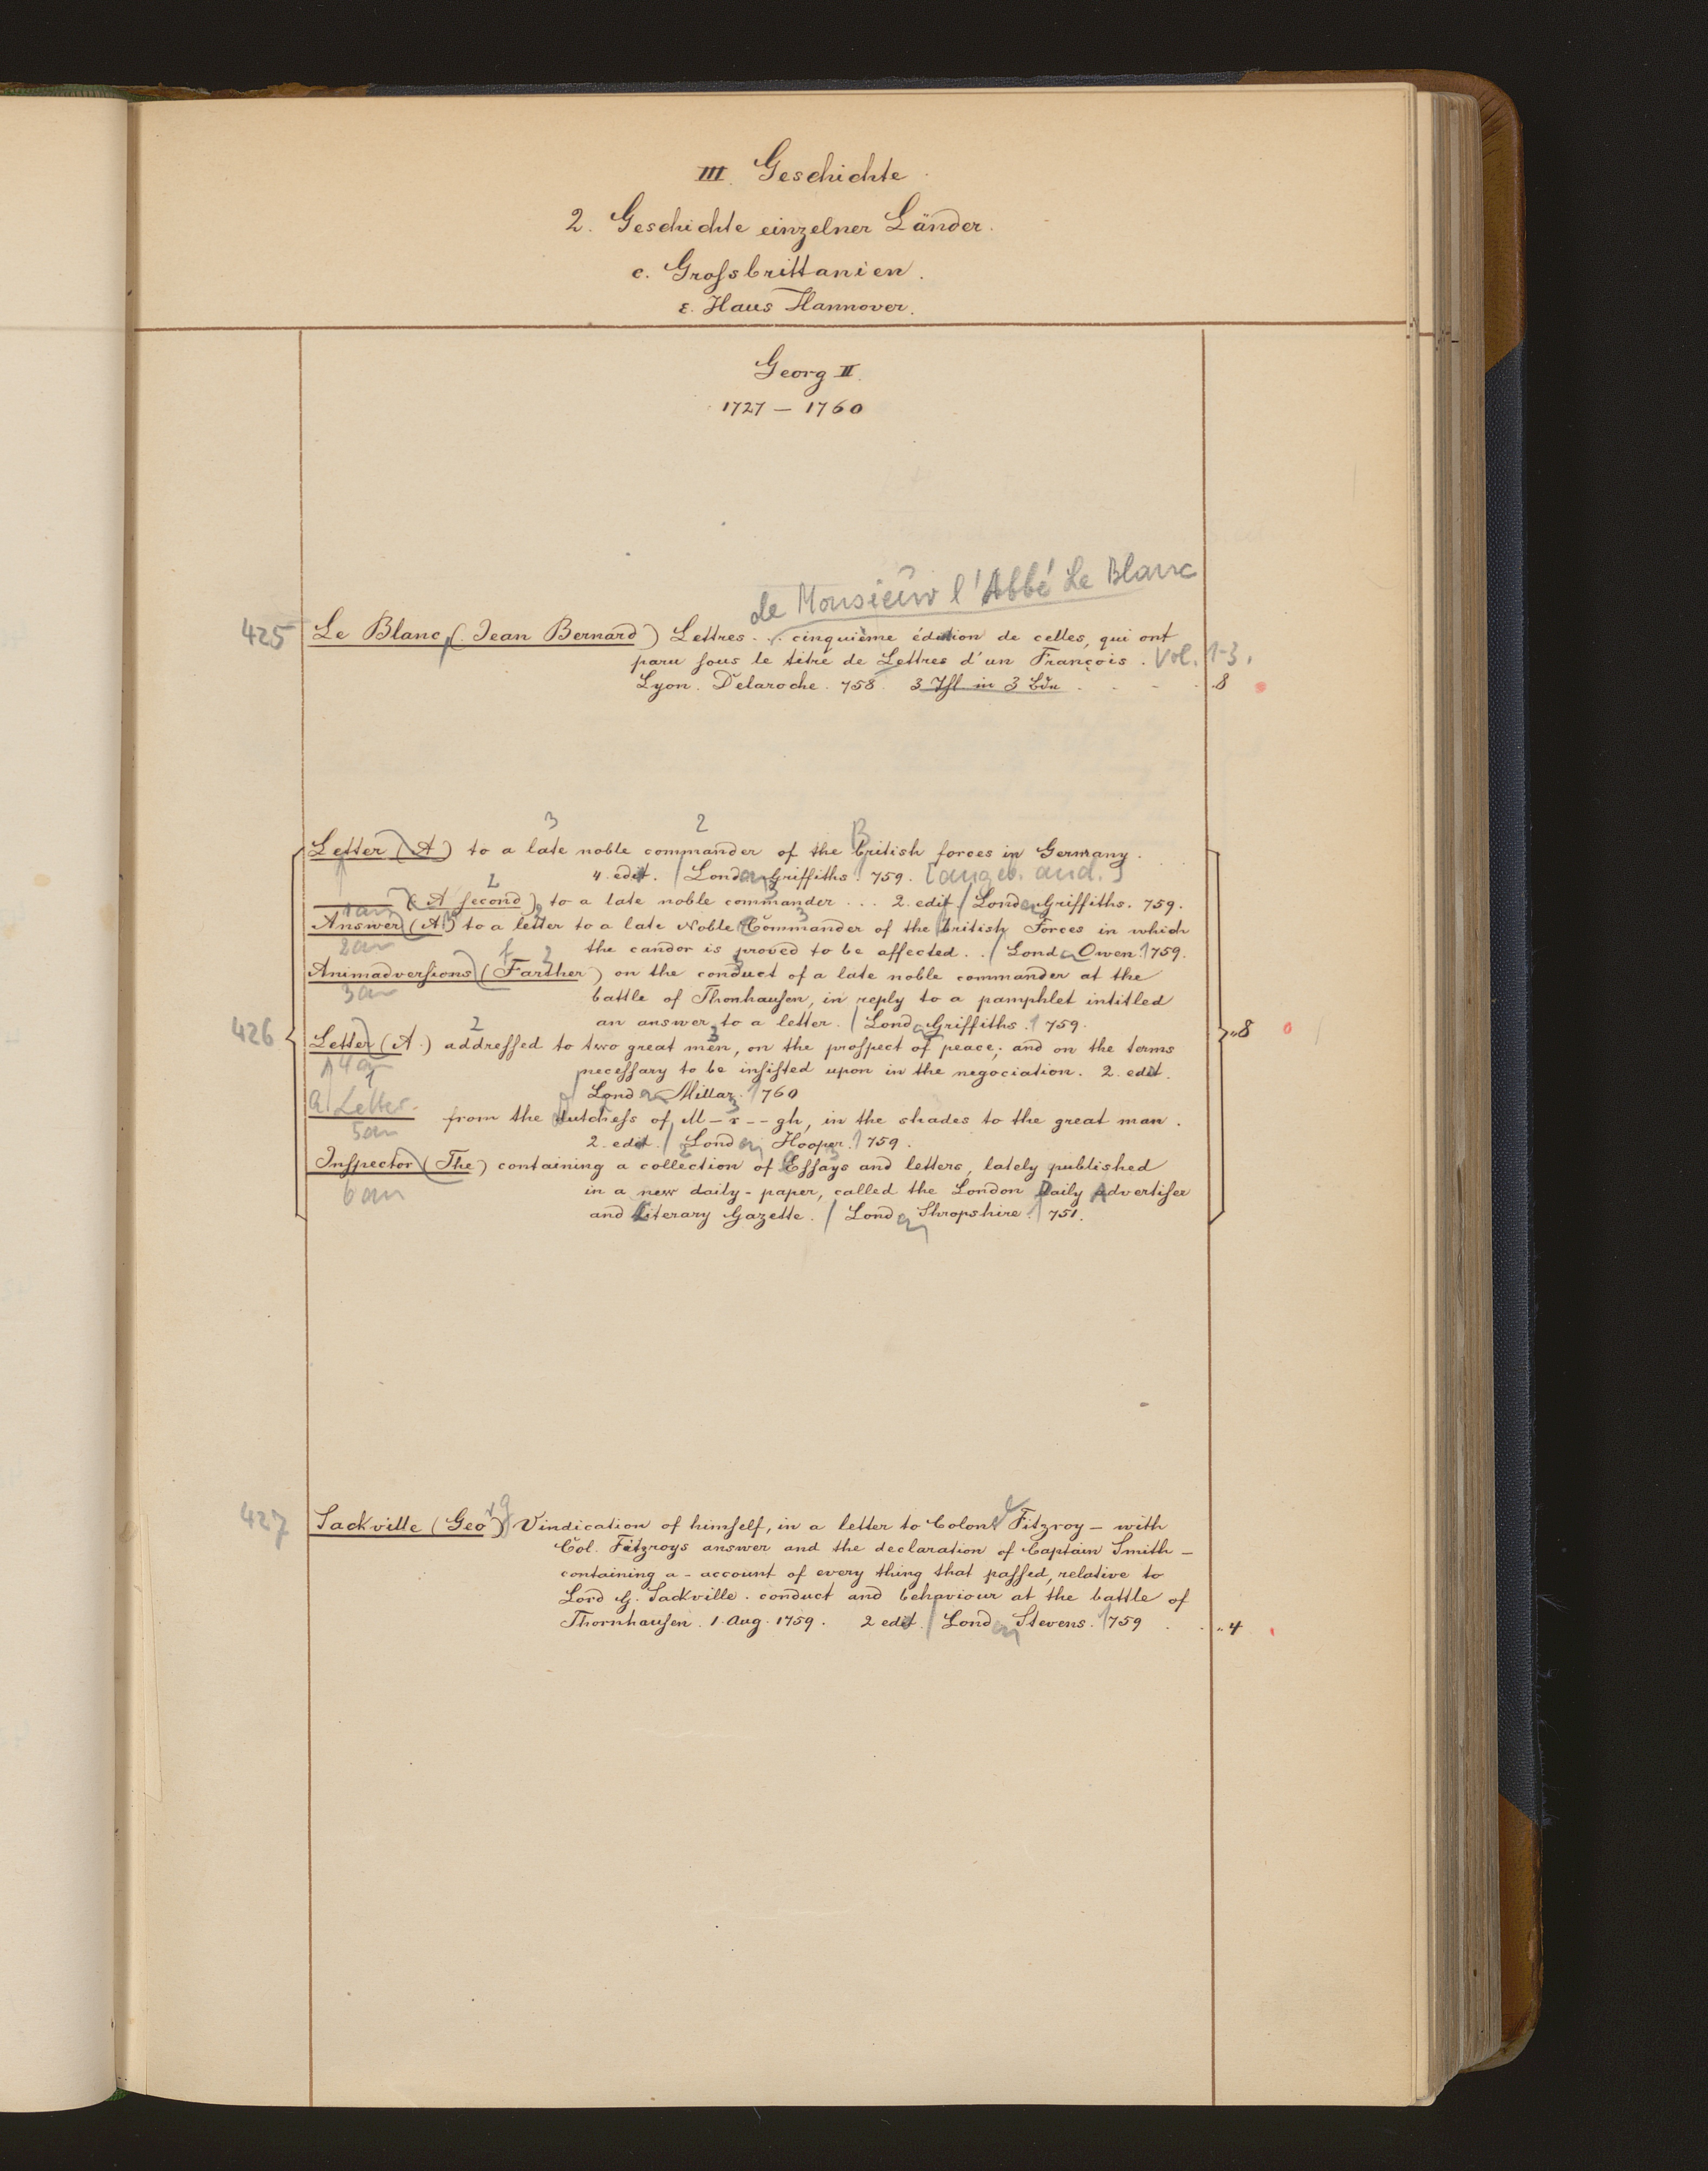 III. Geschichte.
2. Geschichte einzelner Länder.
c. Grofsbrittanien.
ε. Haus Hannover.
Georg II.
1727 — 1760
de Monsieur l'Abbé Le Blanc
425 Le Blanc, (Jean Bernard) Lettres ... cinquième édition de celles, qui ont
paru sous le titre de Lettres d'un François. Vol. 1-3.
Lyon. Delaroche. 758. 3 Thl. in 3 Bdn . . . . 8
3 2 B
Letter (A) to a late noble commander of the british forces in Germany.
4. edit. / London Griffiths. 759. [angeb. and.]
1an 2
——— (A second) to a late noble commander ... 2. edit. / London Griffiths. 759.
Answer (A) to a letter to a late Noble Commander of the british Forces in which
2an the candor is proved to be affected. . / London Owen. 1759.
Animadversions (Farther) on the conduct of a late noble commander at the
3an battle of Thonhausen, in reply to a pamphlet intitled
426 an answer to a letter. / London Griffiths. 1759. „8
Letter (A.) addressed to two great men, on the prospect of peace; and on the terms
4a necessary to be insisted upon in the negociation. 2. edit.
/ London Millar. 1760
a Letter. from the dutchess of M—r--gh, in the shades to the great man.
5an 2. edit. / London Hooper. 1759.
Inspector (The) containing a collection of Essays and letters, lately published
6an in a new daily-paper, called the London Daily Advertiser
and Literary Gazette. / London Shropshire. 1751.
427 Sackville (Georg) Vindication of himself, in a letter to Colonel Fitzroy — with
Col. Fitzroys answer and the declaration of Captain Smith —
containing a - account of every thing that passed, relative to
Lord G. Sackville. conduct and behaviour at the battle of
Thornhausen. 1. Aug. 1759. 2 edit. / London Stevens. 1759 . . „4